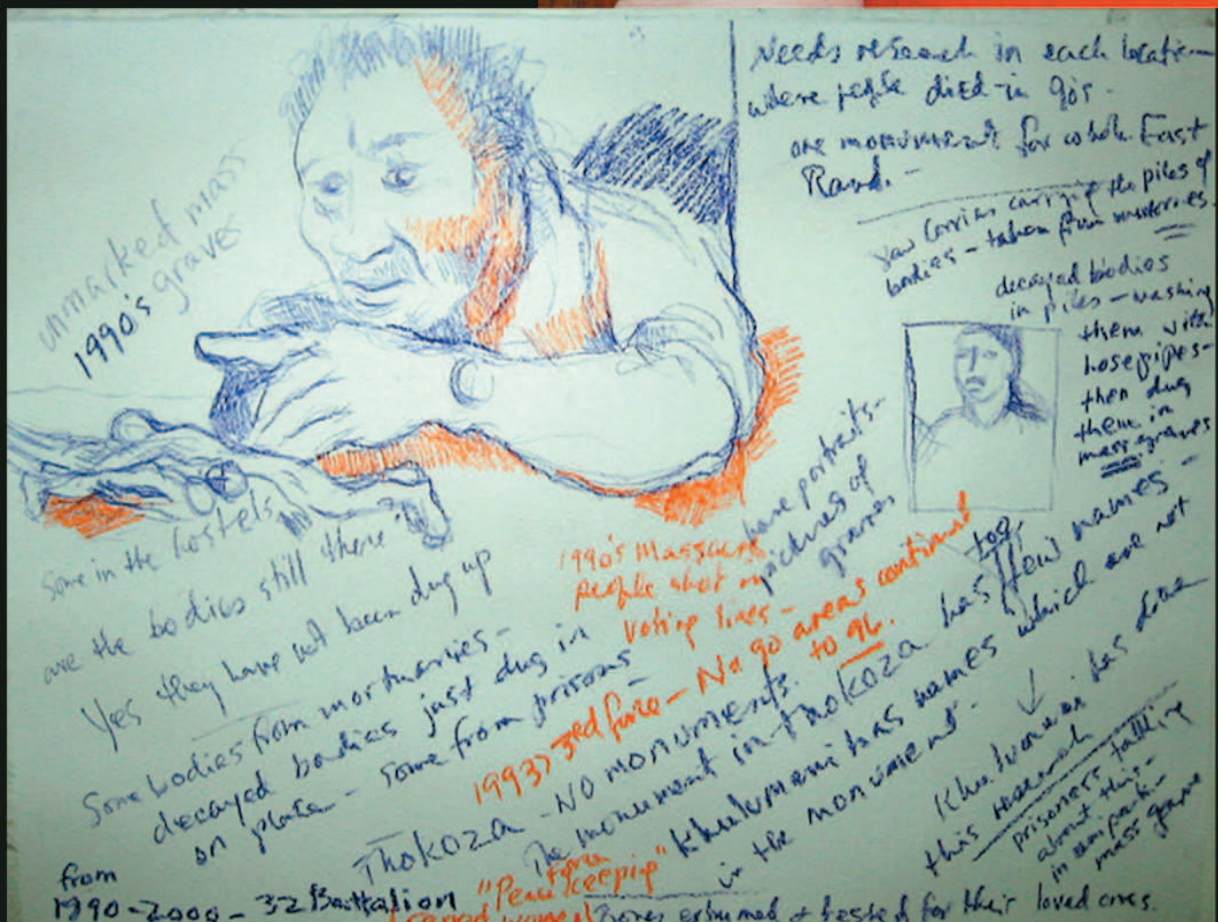 Needs research in each location
where people died in 90s.
one monument for whole East
Rand.-
saw lorries carrying the piles of
bodies - taken from mortuaries.
decayed bodies
in piles - washing
them with
hosepipes-
then dug
them in
mass graves
unmarked mass
1990's graves
Some in the hostels
are the bodies still there
Yes they have not been dug up
Some bodies from mortuaries-
decayed bodies just dug in
on place - some from prisons -
have portraits-
pictures of
graves
1990's Massacre
people shot in
voting lines-
1993) 3rd force - No go areas continued
to 96.
Thokoza - No monuments.
The monument in Thokoza has few names -
too
Khulumani has names which are not
in the monument.
Khulumani has done
this research
prisoners talking
about this-
in
mass grave
from
1990-2000 - 32 Battalion
"Peace keeping"
force
raped women
bones exhumed & tested for their loved ones.